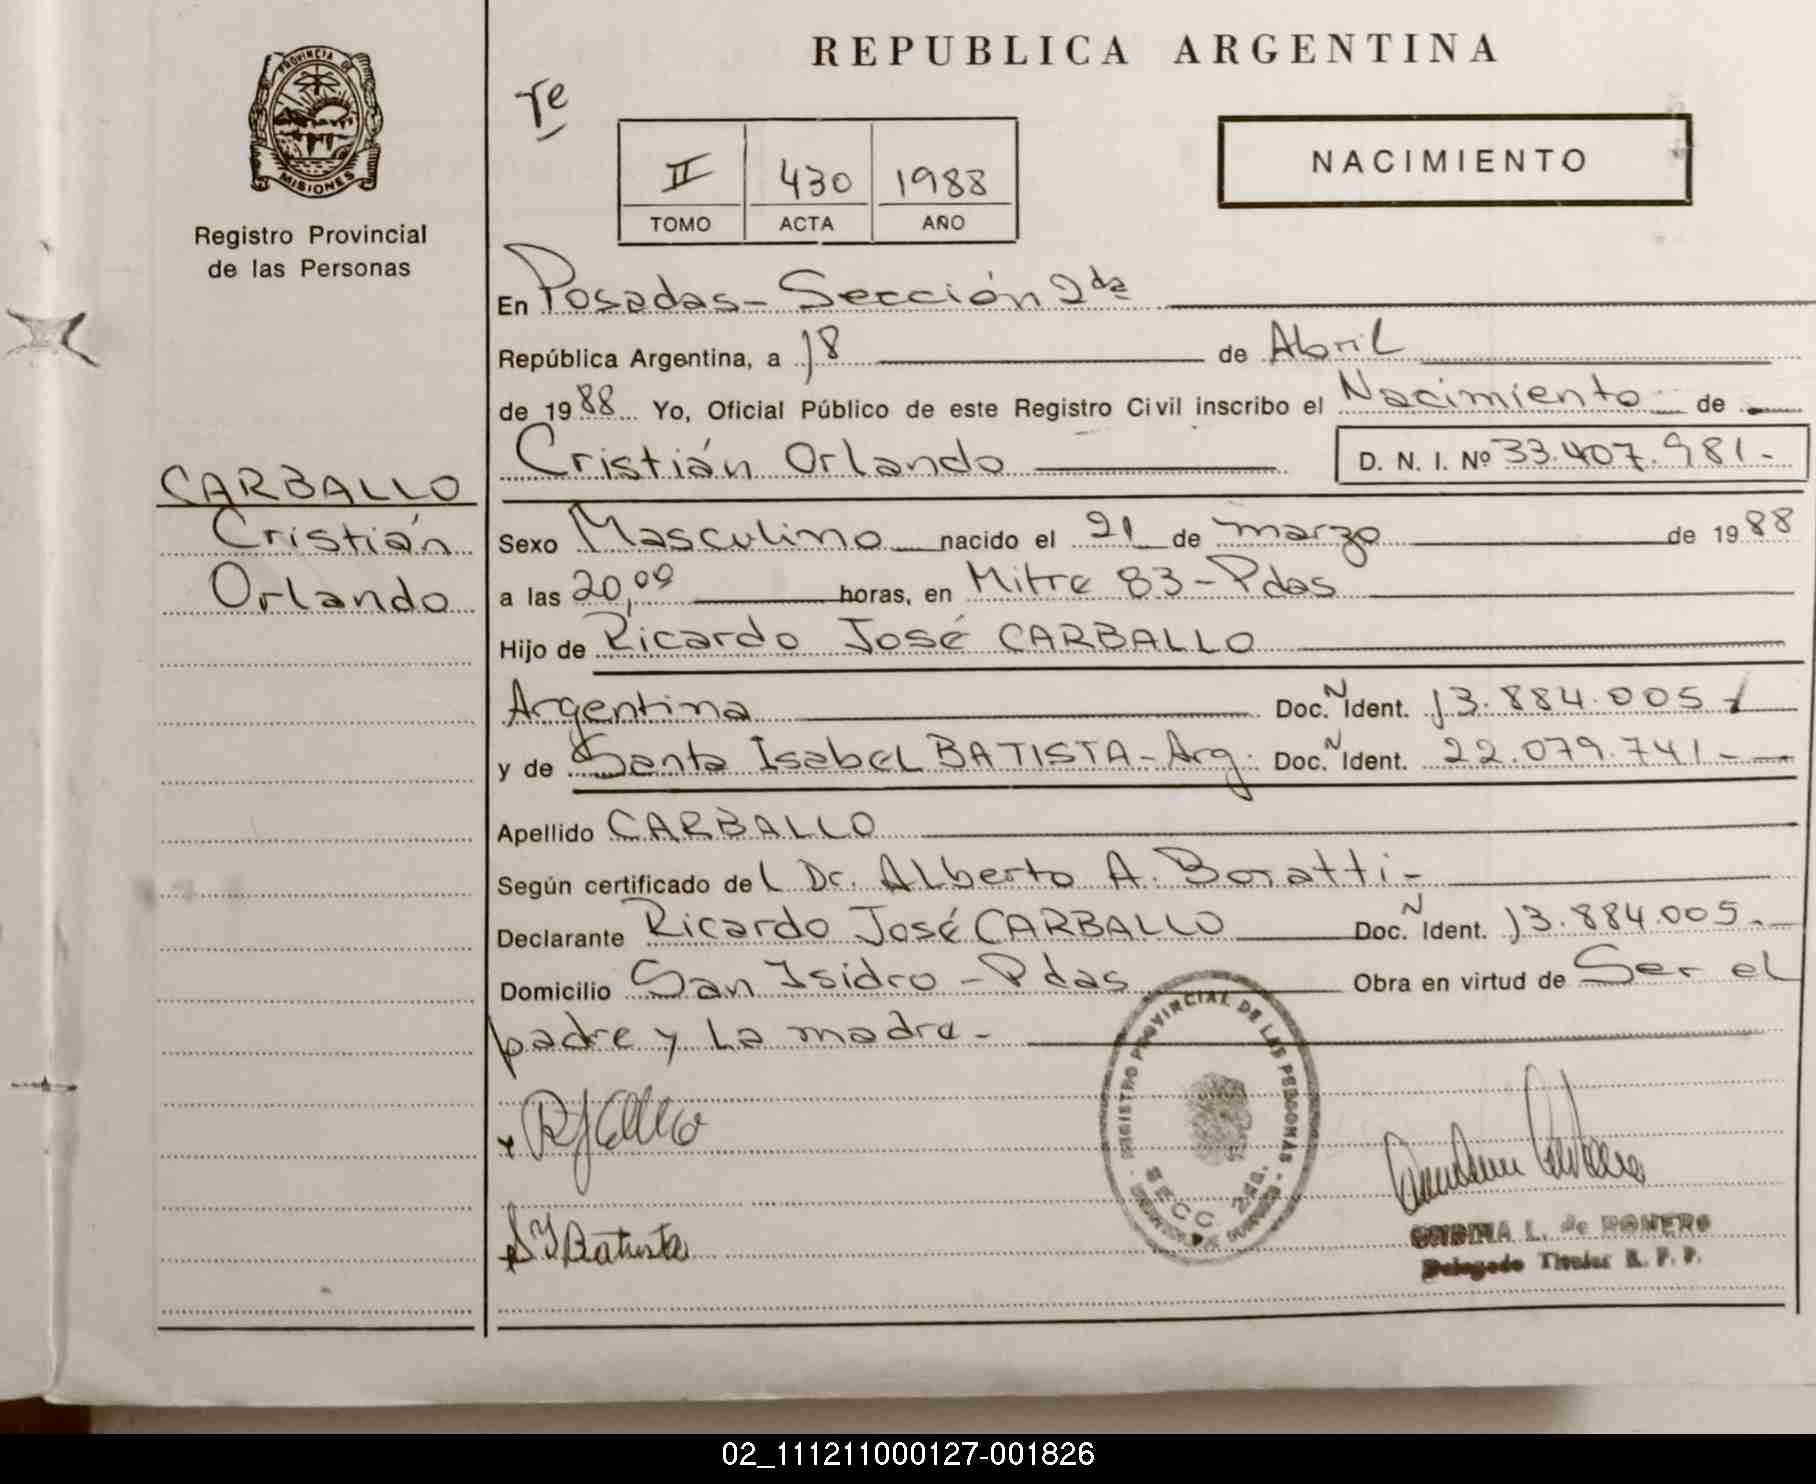 REPUBLICA ARGENTINA
PROVINCIA DE
MISIONES
Registro Provincial
de las Personas
Te
II 430 1988
TOMO ACTA AÑO
NACIMIENTO
En Posadas - Sección 2da
República Argentina, a 18 de Abril
de 1988 Yo, Oficial Público de este Registro Civil inscribo el Nacimiento de
Cristián Orlando D. N. I. Nº 33.407.981-
CARBALLO
Cristián
Orlando
Sexo Masculino nacido el 21 de marzo de 1988
a las 20,00 horas, en Mitre 83 - Pdas
Hijo de Ricardo José CARBALLO
Argentina Doc. N Ident. 13.884.005-
y de Santa Isabel BATISTA - Arg. Doc. N Ident. 22.079.741-
Apellido CARBALLO
Según certificado del Dr. Alberto A. Boratti -
Declarante Ricardo José CARBALLO Doc. N Ident. 13.884.005.-
Domicilio San Isidro - Pdas Obra en virtud de Ser el
padre y La madre -
REGISTRO PROVINCIAL DE LAS PERSONAS
SECC. 2da.
S I Batista
L. de ROMERO
Delegado Titular R. P. P.
02_111211000127-001826